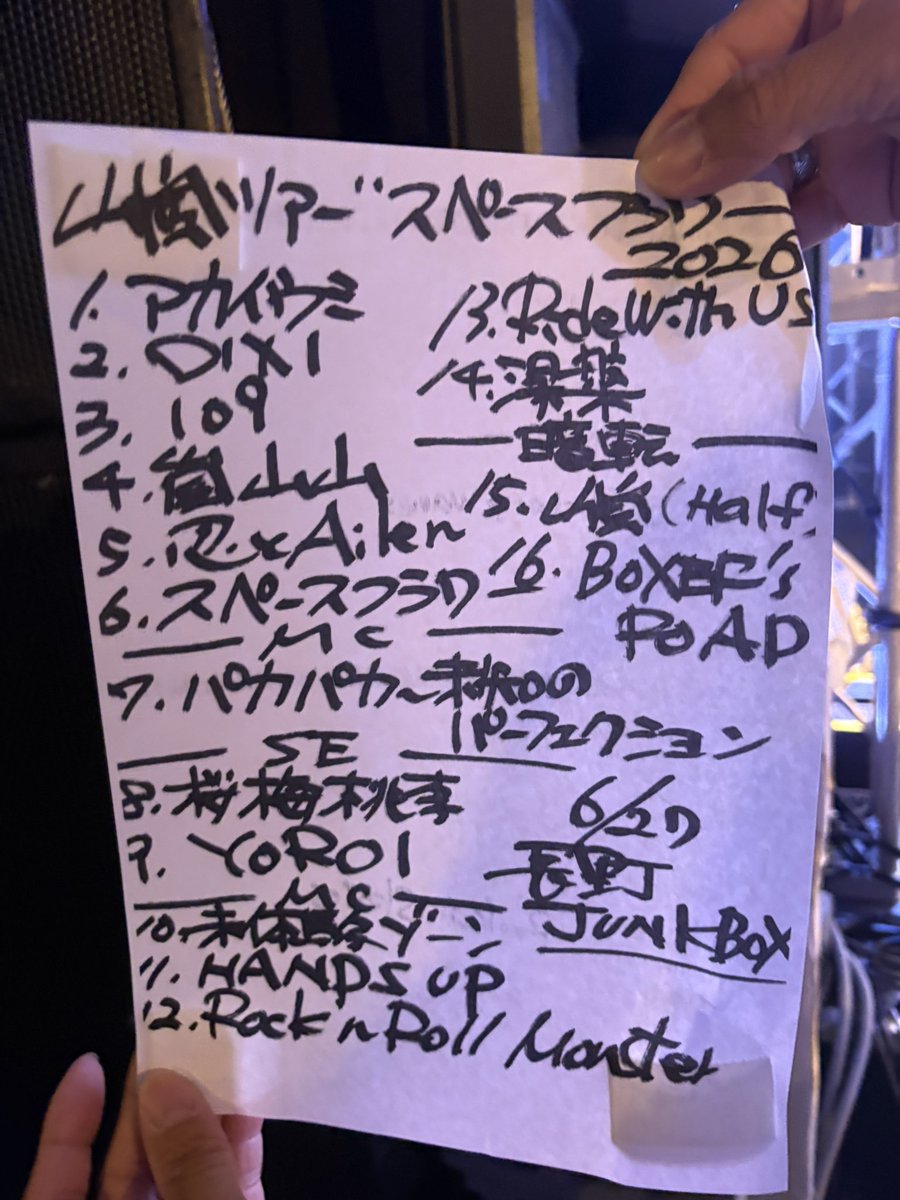 山嵐ツアー"スペースフラワー
2026
1. アカイヤミ
2. DIXI
3. 109
4. 嵐山山
5. 忍とAilen
6. スペースフラワー
MC
7. パカパカ〜未知の
パーフェクション
SE
8. 桜梅桃李
9. YOROI
MC
10. 未体験ゾーン
11. HANDS UP
12. Rock n Roll Monster
13. Ride With Us
14. 湯葉
暗転
15. 山嵐(Half
16. BOXER's
ROAD
6/27
長野
JUNKBOX